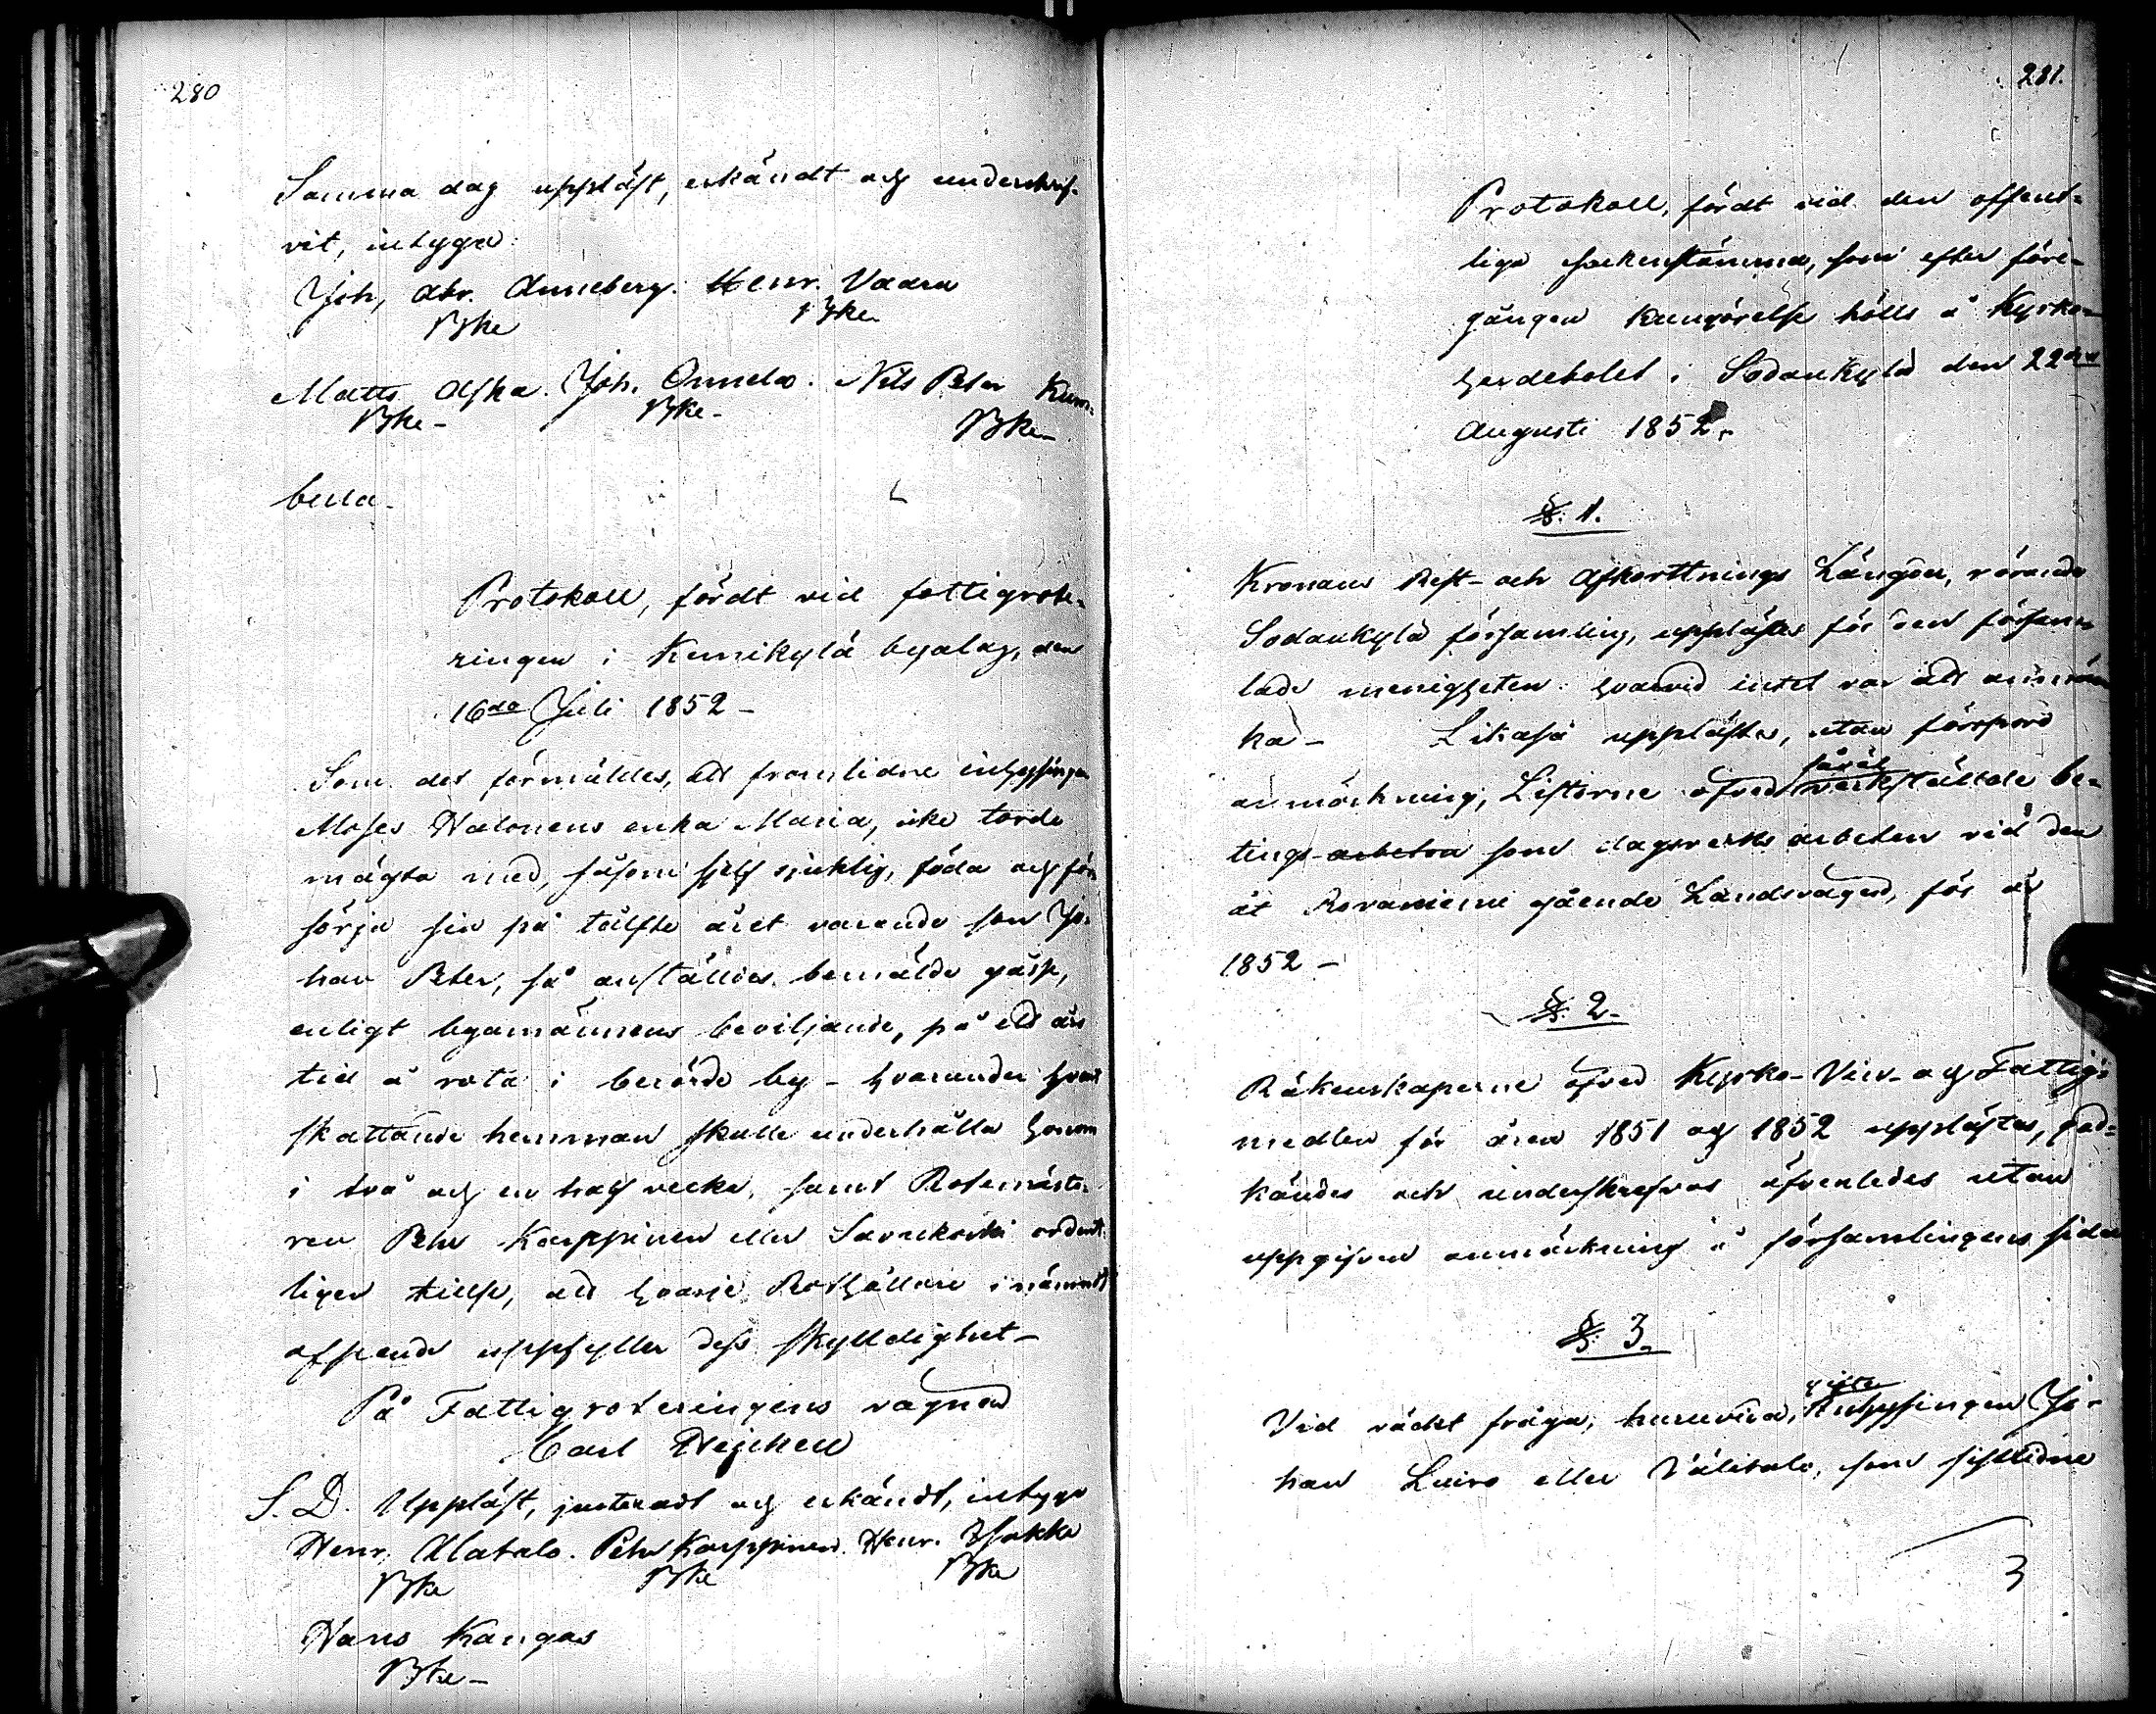 280
Samma dag uppläst, erkändt och underskrif-
vit, intyga:
Joh, Abr. Anneberg. Henr. Vaara
Bmke Bmke
Matts Aska. Joh. Onnela. Nils Peter Kum-
Bmke- Bmke- Bmke-
bula.
Protokoll, fördt vid fattigrote-
ringen i Kemikylä byalag, den
16de Juli 1852-
Som det förmältes, att framlidne inhysingen
Moses Halonens enka Maria, icke torde
mägta med, såsom sjelf sjuklig, föda och för-
sörja sin på tolfte året varande son Jo-
han Peter, så anstäldes bemälde gosse,
enligt byamännens beviljande, på ett års
tid å rota i berörde by - hvarunder hvart
skattande hemman skulle underhålla honom
i två och en half vecka, samt Rotemäste-
ren Pehr Karppinen eller Savukoski ordent-
ligen tillse, att hvarje Rothållare i nämndt
afseende uppfyller dess skylldighet-
På Fattigroteringens vägnar
Carl Heickell
S. D. Uppläst, justeradt och erkändt, intyga
Henr. Alatalo. Pehr Karppinen. Henr. Isakka
Bmke Bmke Bmke
Hans Kangas
Bmke-
281.
Protokoll, fördt vid den offent-
liga sockenstämma, som efter före-
gången kungörelse hölls å Kyrko-
herdebolet i Sodankylä den 22dra
Augusti 1852.
§. 1.
Kronans Rest- och Afkorttnings Längder, rörande
Sodankylä församling, upplästes för den försam-
lade menigheten: hvarvid intet var att anmär-
ka- Likaså upplästes, utan förspord
anmärkning, Listorne öfver såväl verkställde be-
tings-arbeten som dagsverks arbeten vid den
åt Rovaniemi gående Landsvägen, för år
1852-
§. 2.
Räkenskaperne öfver Kyrko- Vin- och Fattig-
medlen för åren 1851 och 1852 upplästes, god-
kändes och underskrefvos äfvenledes utan
uppgifven anmärkning å församlingens sida
§. 3.
Vid väckt fråga, huruvida, gifte Inhysingen Jo-
han Luiro eller Välitalo, som sistlidne
3